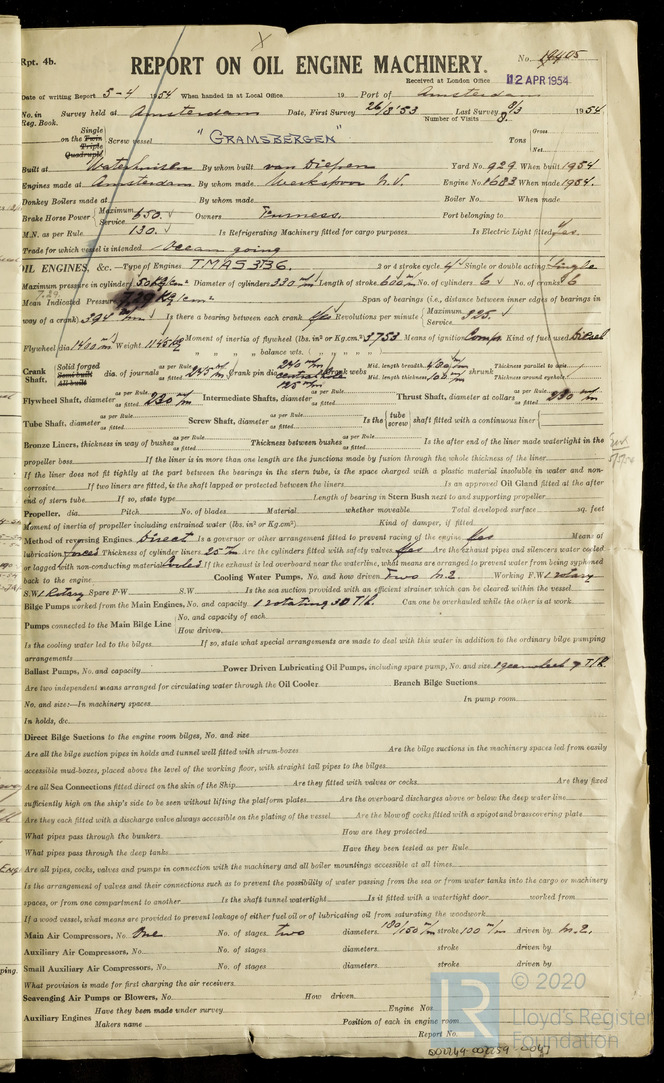 Rpt. 4b.
REPORT ON OIL ENGINE MACHINERY.
No. 19405
Received at London Office 12 APR 1954
Date of writing Report 5-4 1954 When handed in at Local Office 19 Port of Amsterdam
No. in Reg. Book. Survey held at Amsterdam Date, First Survey 26/8'53 Last Survey 9/3 1954
Number of Visits 8
on the Single Twin Triple Quadruple Screw vessel "GRAMSBERGEN" Tons Gross Net
Built at Waterhuizen By whom built van Diepen Yard No. 929 When built 1954
Engines made at Amsterdam By whom made Werkspoor N.V. Engine No. 1683 When made 1954.
Donkey Boilers made at By whom made Boiler No. When made
Brake Horse Power Maximum Service 650. Owners Furness. Port belonging to
M.N. as per Rule 130. Is Refrigerating Machinery fitted for cargo purposes. Is Electric Light fitted Yes.
Trade for which vessel is intended Ocean going
OIL ENGINES, &c. Type of Engines TMAS 336. 2 or 4 stroke cycle 4 Single or double acting Single
Maximum pressure in cylinders 50 Kg/cm² Diameter of cylinders 330 m/m Length of stroke 600 m/m No. of cylinders 6 No. of cranks 6
Mean Indicated Pressure 7,29 Kg/cm² Span of bearings (i.e., distance between inner edges of bearings in
way of a crank) 394 m/m Is there a bearing between each crank Yes Revolutions per minute Maximum Service 325.
Flywheel dia. 1400 m/m Weight 1145 kg Moment of inertia of flywheel (lbs. in² or Kg.cm²) 3753 Means of ignition Comp. Kind of fuel used Diesel
" " " balance wts. ( " " " )
Crank Shaft, Solid forged Semi built All built dia. of journals as per Rule as fitted 245 m/m Crank pin dia. 240 m/m Crank webs Mid. length breadth Mid. length thickness 100 m/m shrunk Thickness parallel to axis Thickness around eyehole
Flywheel Shaft, diameter as per Rule as fitted 230 m/m Intermediate Shafts, diameter as per Rule as fitted Thrust Shaft, diameter at collars as per Rule as fitted 230 m/m
Tube Shaft, diameter as per Rule as fitted Screw Shaft, diameter as per Rule as fitted Is the tube screw shaft fitted with a continuous liner
Bronze Liners, thickness in way of bushes as per Rule as fitted Thickness between bushes as per Rule as fitted Is the after end of the liner made watertight in the
propeller boss If the liner is in more than one length are the junctions made by fusion through the whole thickness of the liner
If the liner does not fit tightly at the part between the bearings in the stern tube, is the space charged with a plastic material insoluble in water and non-
corrosive If two liners are fitted, is the shaft lapped or protected between the liners Is an approved Oil Gland fitted at the after
end of stern tube If so, state type Length of bearing in Stern Bush next to and supporting propeller
Propeller, dia. Pitch No. of blades Material whether moveable Total developed surface sq. feet
Moment of inertia of propeller including entrained water (lbs. in² or Kg.cm²) Kind of damper, if fitted
Method of reversing Engines Direct Is a governor or other arrangement fitted to prevent racing of the engine Yes Means of
lubrication forced Thickness of cylinder liners 25 m/m Are the cylinders fitted with safety valves Yes Are the exhaust pipes and silencers water cooled
or lagged with non-conducting material Cooled If the exhaust is led overboard near the waterline, what means are arranged to prevent water from being syphoned
back to the engine Cooling Water Pumps, No. and how driven Two M.E. Working F.W. 1 rotary
S.W. 1 Rotary Spare F-W S.W Is the sea suction provided with an efficient strainer which can be cleared within the vessel
Bilge Pumps worked from the Main Engines, No. and capacity 1 rotating 30 T/R. Can one be overhauled while the other is at work
Pumps connected to the Main Bilge Line No. and capacity of each How driven
Is the cooling water led to the bilges If so, state what special arrangements are made to deal with this water in addition to the ordinary bilge pumping
arrangements
Ballast Pumps, No. and capacity Power Driven Lubricating Oil Pumps, including spare pump, No. and size 9 T/R.
Are two independent means arranged for circulating water through the Oil Cooler Branch Bilge Suctions
No. and size:—In machinery spaces In pump room
In holds, &c.
Direct Bilge Suctions to the engine room bilges, No. and size
Are all the bilge suction pipes in holds and tunnel well fitted with strum-boxes Are the bilge suctions in the machinery spaces led from easily
accessible mud-boxes, placed above the level of the working floor, with straight tail pipes to the bilges
Are all Sea Connections fitted direct on the skin of the Ship Are they fitted with valves or cocks Are they fixed
sufficiently high on the ship's side to be seen without lifting the platform plates Are the overboard discharges above or below the deep water line
Are they each fitted with a discharge valve always accessible on the plating of the vessel Are the blow off cocks fitted with a spigot and brass covering plate
What pipes pass through the bunkers How are they protected
What pipes pass through the deep tanks Have they been tested as per Rule
Are all pipes, cocks, valves and pumps in connection with the machinery and all boiler mountings accessible at all times
Is the arrangement of valves and their connections such as to prevent the possibility of water passing from the sea or from water tanks into the cargo or machinery
spaces, or from one compartment to another Is the shaft tunnel watertight Is it fitted with a watertight door worked from
If a wood vessel, what means are provided to prevent leakage of either fuel oil or of lubricating oil from saturating the woodwork
Main Air Compressors, No. One No. of stages two diameters 180/160 m/m stroke 100 m/m driven by M.E.
Auxiliary Air Compressors, No. No. of stages diameters stroke driven by
Small Auxiliary Air Compressors, No. No. of stages diameters stroke driven by
What provision is made for first charging the air receivers
Scavenging Air Pumps or Blowers, No. How driven
Auxiliary Engines Have they been made under survey Engine Nos.
Makers name Position of each in engine room
Report No.
LR © 2020
Lloyd's Register
Foundation
002249-002259-0047